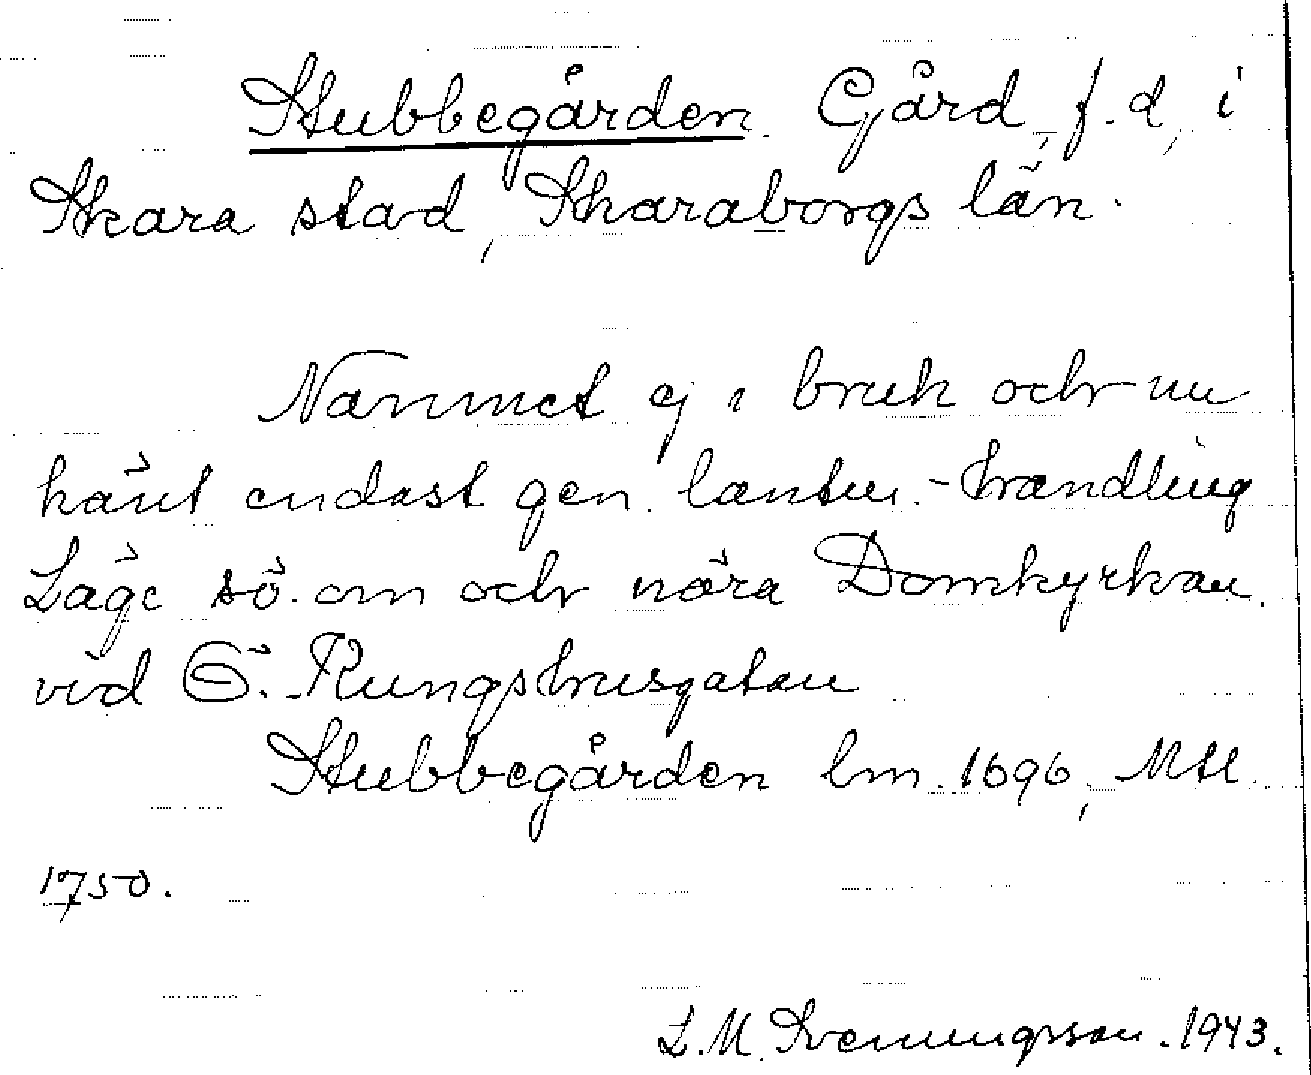 Stubbegården. Gård, f.d., i
Skara stad, Skaraborgs län.
Namnet ej i bruk och nu
känt endast gen. lantm.-handling
Läge sö. om och nära Domkyrkan.
vid Ö. Kungshusgatan
Stubbegården lm. 1696, Mtl.
1750.
L.M. Svenungsson. 1943.